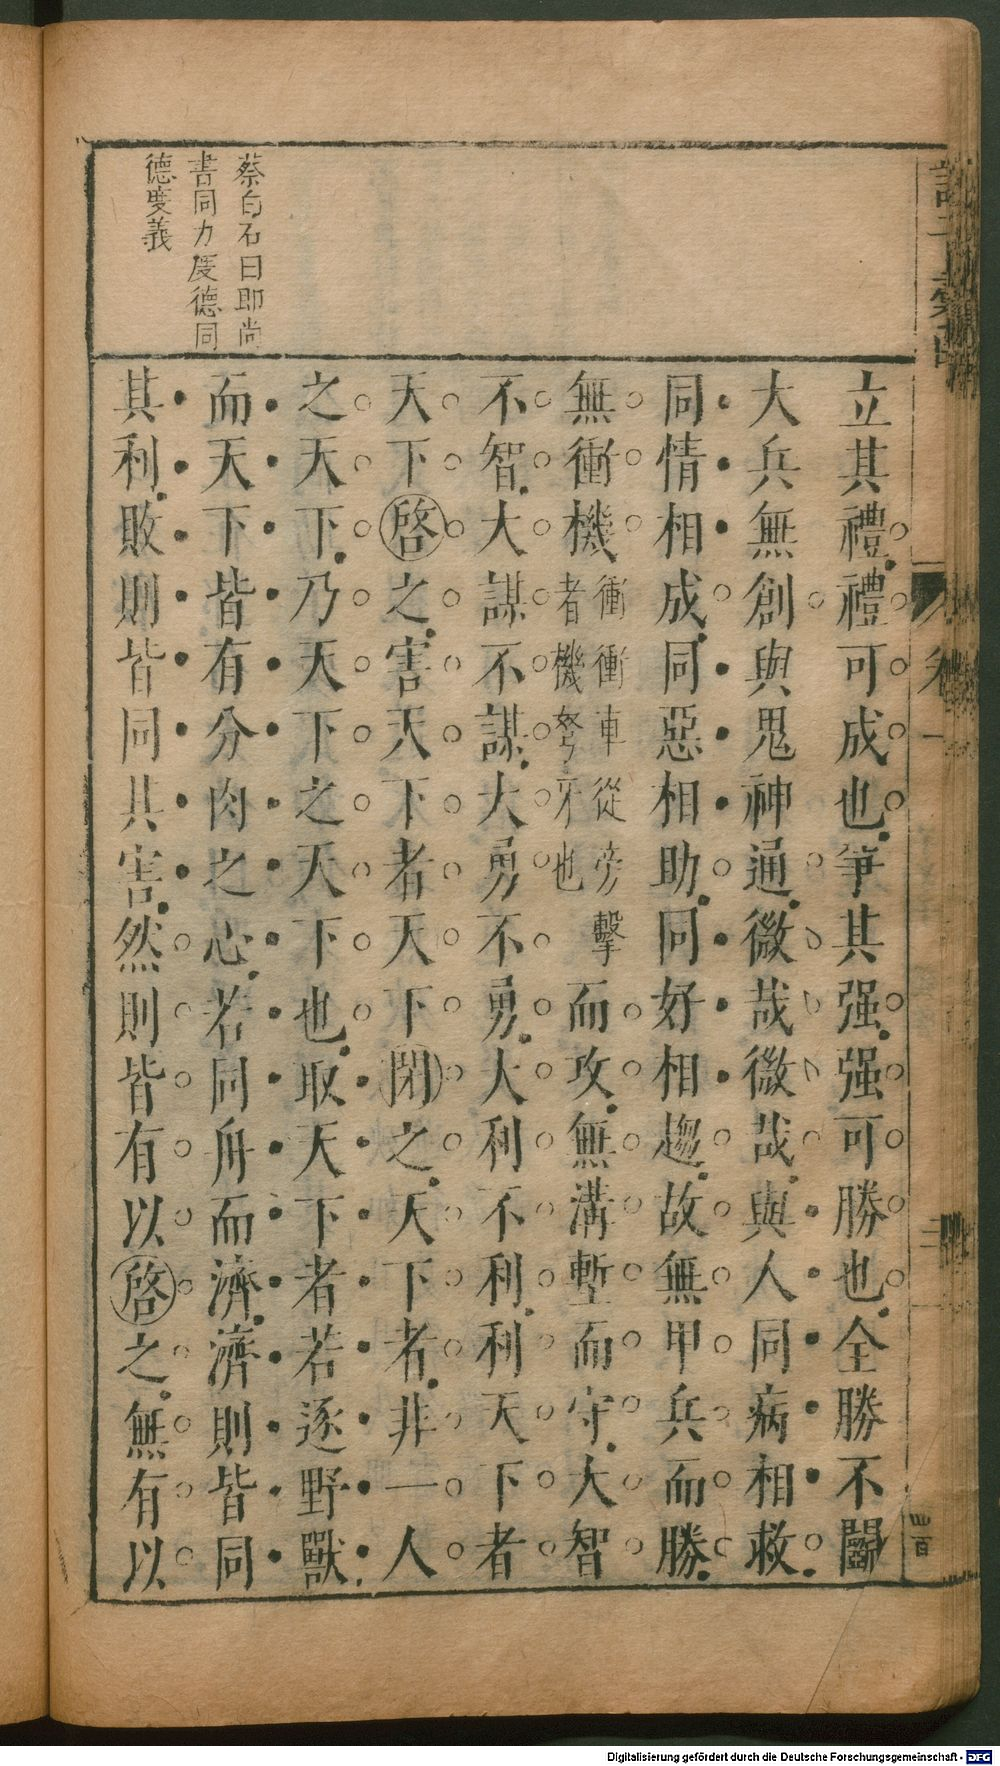 蔡白石曰即尚
書同力度德同
德度義
立其禮禮可成也爭其强强可勝也全勝不鬭
大兵無創與鬼神通微哉微哉與人同病相救
同情相成同惡相助同好相趨故無甲兵而勝
無衝機衝衝車從旁擊者機弩牙也而攻無溝塹而守大智
不智大謀不謀大勇不勇大利不利利天下者
天下啓之害天下者天下閉之天下者非一人
之天下乃天下之天下也取天下者若逐野獸
而天下皆有分肉之心若同舟而濟濟則皆同
其利敗則皆同其害然則皆有以啓之無有以
Digitalisierung gefördert durch die Deutsche Forschungsgemeinschaft - DFG